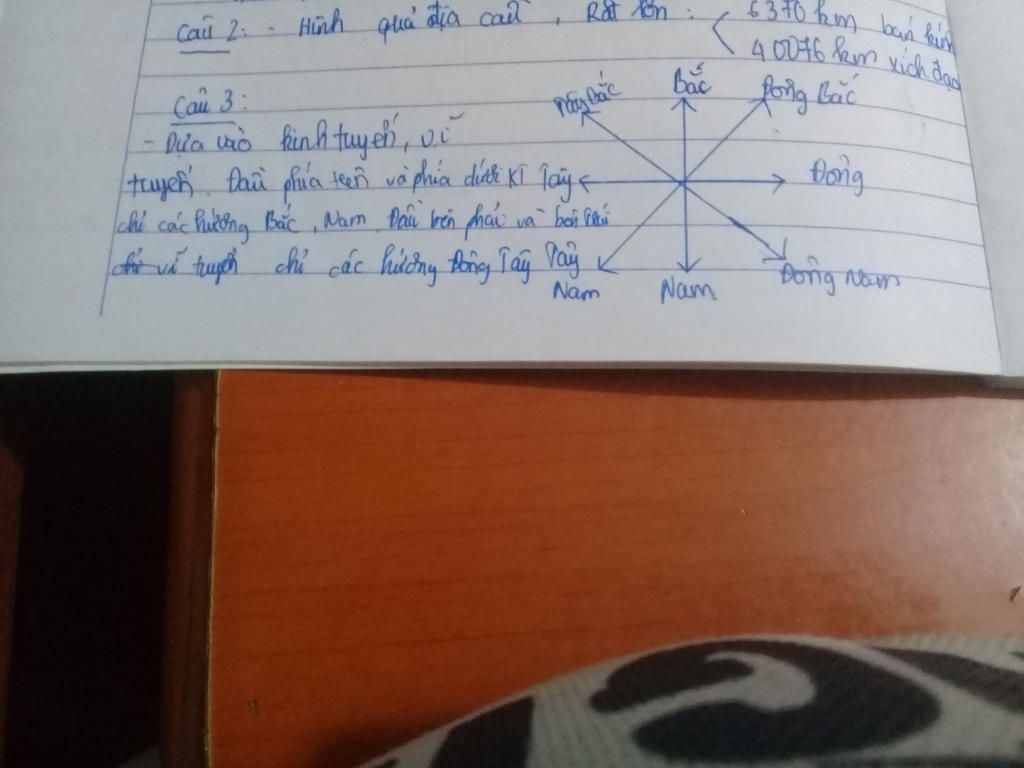 Câu 2: - Hình quả địa cầu, Rất lớn: 6370 km bán kính
40076 km xích đạo
Câu 3:
- Dựa vào kinh tuyến, vĩ
tuyến. Đầu phía trên và phía dưới KT
chỉ các hướng Bắc, Nam. Đầu bên phải và bên trái
chỉ vĩ tuyến chỉ các hướng Đông Tây
Tây Bắc Bắc Đông Bắc
Tây Đông
Tây Nam Nam Đông Nam